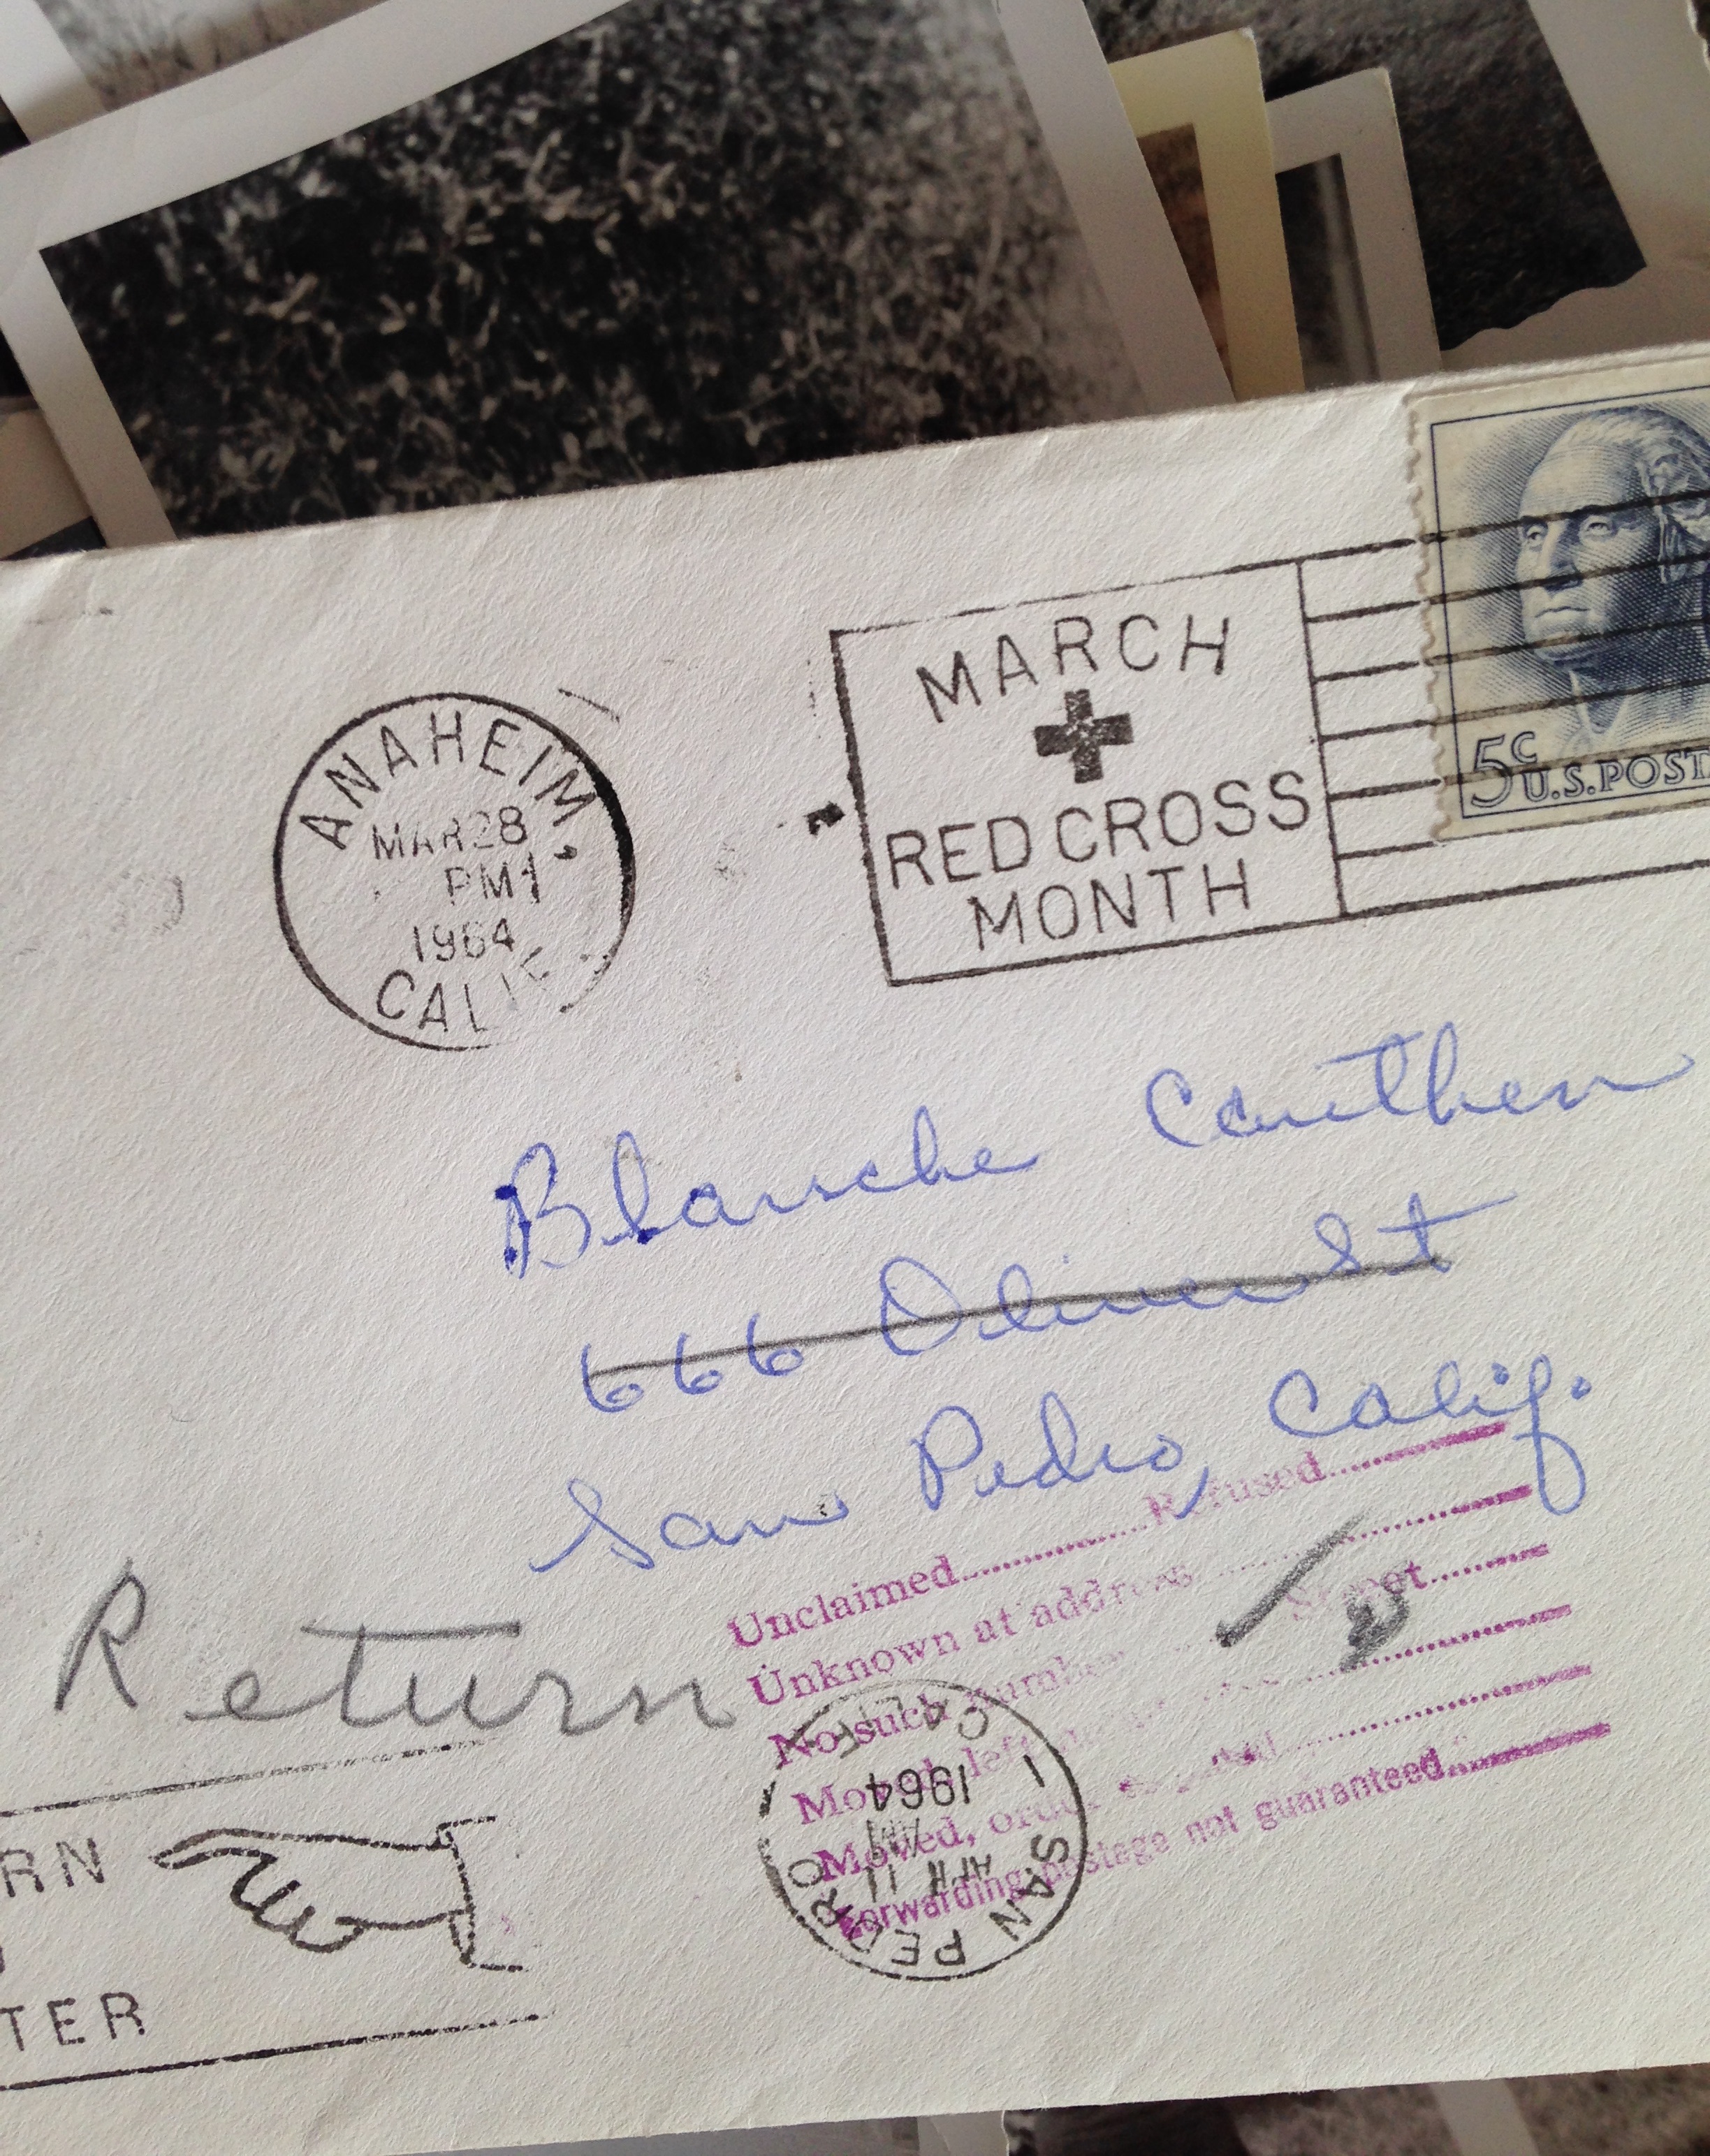 ANAHEIM
MAR 28
PM
1964
CALIF.
MARCH
RED CROSS
MONTH
5c
U.S. POST
Blanche Cauthen
666 Olive St
San Pedro, Calif.
Return
Unclaimed..........Refused..........
Unknown at address
No such number
Moved, left
Moved, order
Forwarding postage not guaranteed
SAN PEDRO
APR 11
AM
1964
CALIF
RN
TER